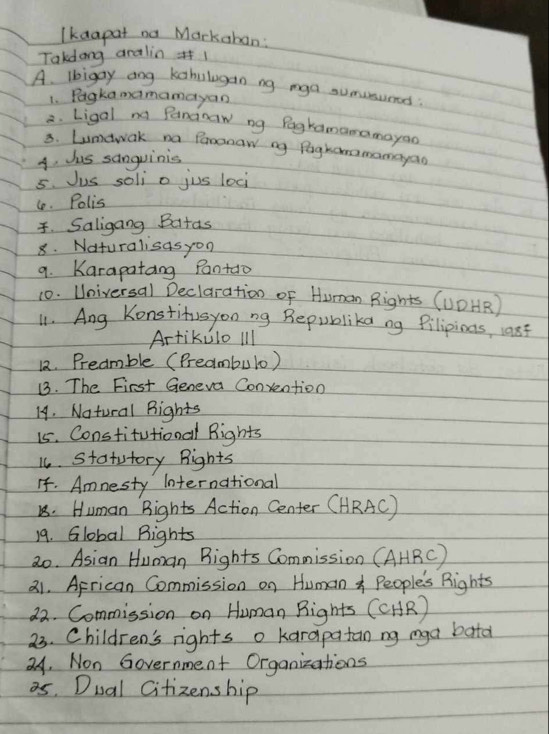 Ikaapat na Markahan:
Takdang aralin # 1
A. Ibigay ang kahulugan ng mga sumusunod:
1. Pagkamamamayan
2. Ligal na Pananaw ng Pagkamamamayan
3. Lumawak na Pananaw ng Pagkamamamayan
4. Jus sanguinis
5. Jus soli o jus loci
6. Polis
7. Saligang Batas
8. Naturalisasyon
9. Karapatang Pantao
10. Universal Declaration of Human Rights (UDHR)
11. Ang Konstitusyon ng Republika ng Pilipinas, 1987
Artikulo III
12. Preamble (Preambulo)
13. The First Geneva Convention
14. Natural Rights
15. Constitutional Rights
16. Statutory Rights
17. Amnesty International
18. Human Rights Action Center (HRAC)
19. Global Rights
20. Asian Human Rights Commission (AHRC)
21. African Commission on Human & People's Rights
22. Commission on Human Rights (CHR)
23. Children's rights o karapatan ng mga bata
24. Non Government Organizations
25. Dual Citizenship